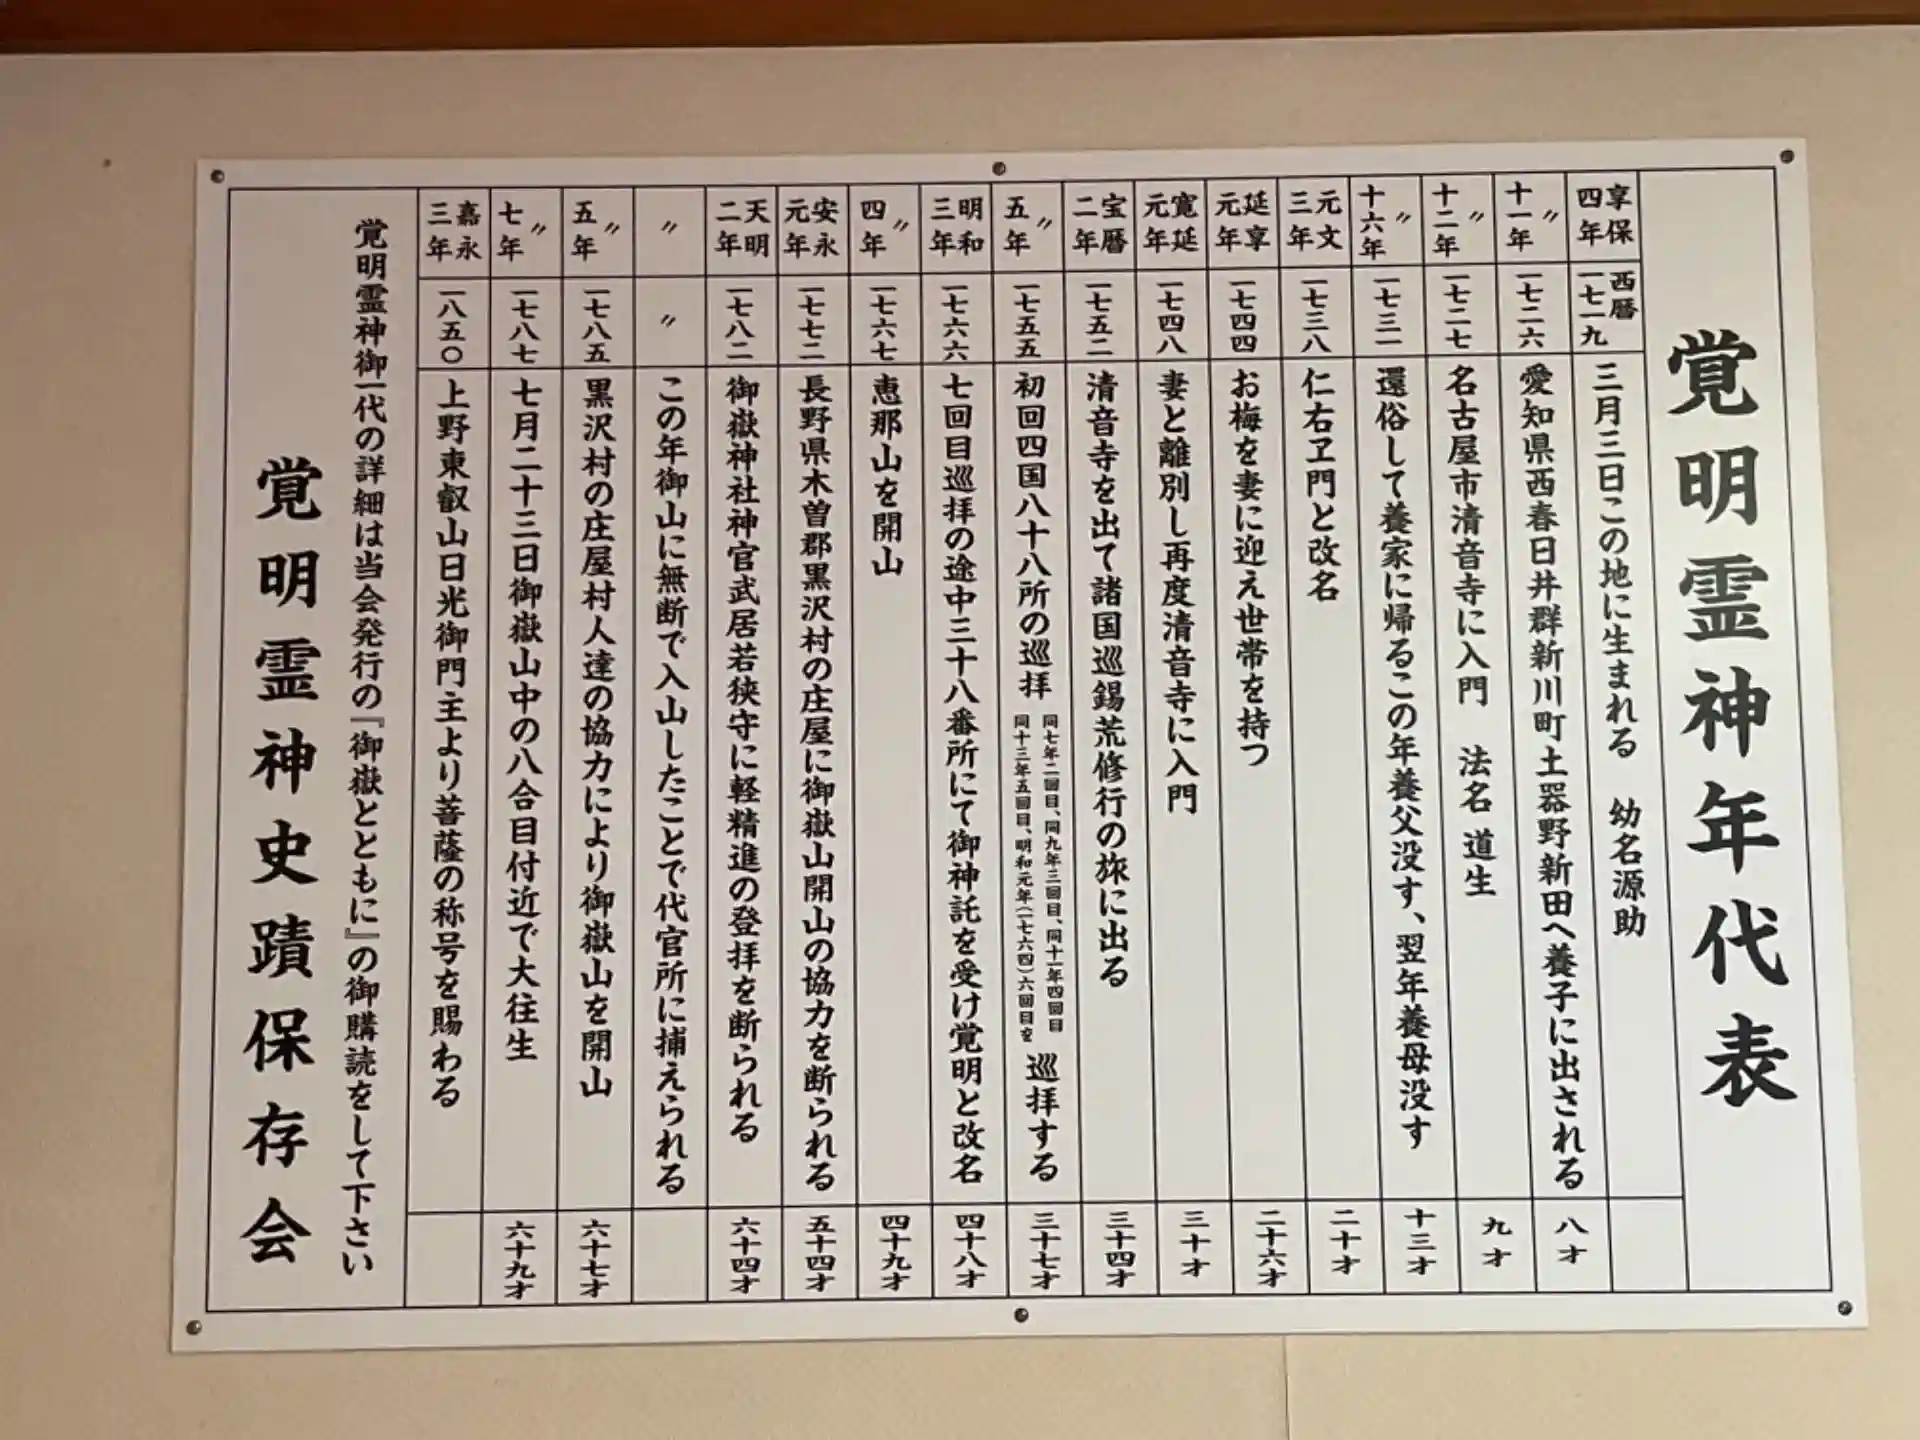 覚明霊神年代表
享保四年 西暦一七一九 三月三日この地に生まれる 幼名源助
〃十一年 一七二六 愛知県西春日井群新川町土器野新田へ養子に出される 八才
〃十二年 一七二七 名古屋市清音寺に入門 法名 道生 九才
〃十六年 一七三一 還俗して養家に帰るこの年養父没す、翌年養母没す 十三才
元文三年 一七三八 仁右ヱ門と改名 二十才
延享元年 一七四四 お梅を妻に迎え世帯を持つ 二十六才
寛延元年 一七四八 妻と離別し再度清音寺に入門 三十才
宝暦二年 一七五二 清音寺を出て諸国巡錫荒修行の旅に出る 三十四才
〃五年 一七五五 初回四国八十八所の巡拝 同七年二回目、同九年三回目、同十一年四回目 同十三年五回目、明和元年(一七六四)六回目を 巡拝する 三十七才
明和三年 一七六六 七回目巡拝の途中三十八番所にて御神託を受け覚明と改名 四十八才
〃四年 一七六七 恵那山を開山 四十九才
安永元年 一七七二 長野県木曽郡黒沢村の庄屋に御嶽山開山の協力を断られる 五十四才
天明二年 一七八二 御嶽神社神官武居若狭守に軽精進の登拝を断られる 六十四才
〃 〃 この年御山に無断で入山したことで代官所に捕えられる
〃五年 一七八五 黒沢村の庄屋村人達の協力により御嶽山を開山 六十七才
〃七年 一七八七 七月二十三日御嶽山中の八合目付近で大往生 六十九才
嘉永三年 一八五〇 上野東叡山日光御門主より菩薩の称号を賜わる
覚明霊神御一代の詳細は当会発行の『御嶽とともに』の御購読をして下さい
覚明霊神史蹟保存会